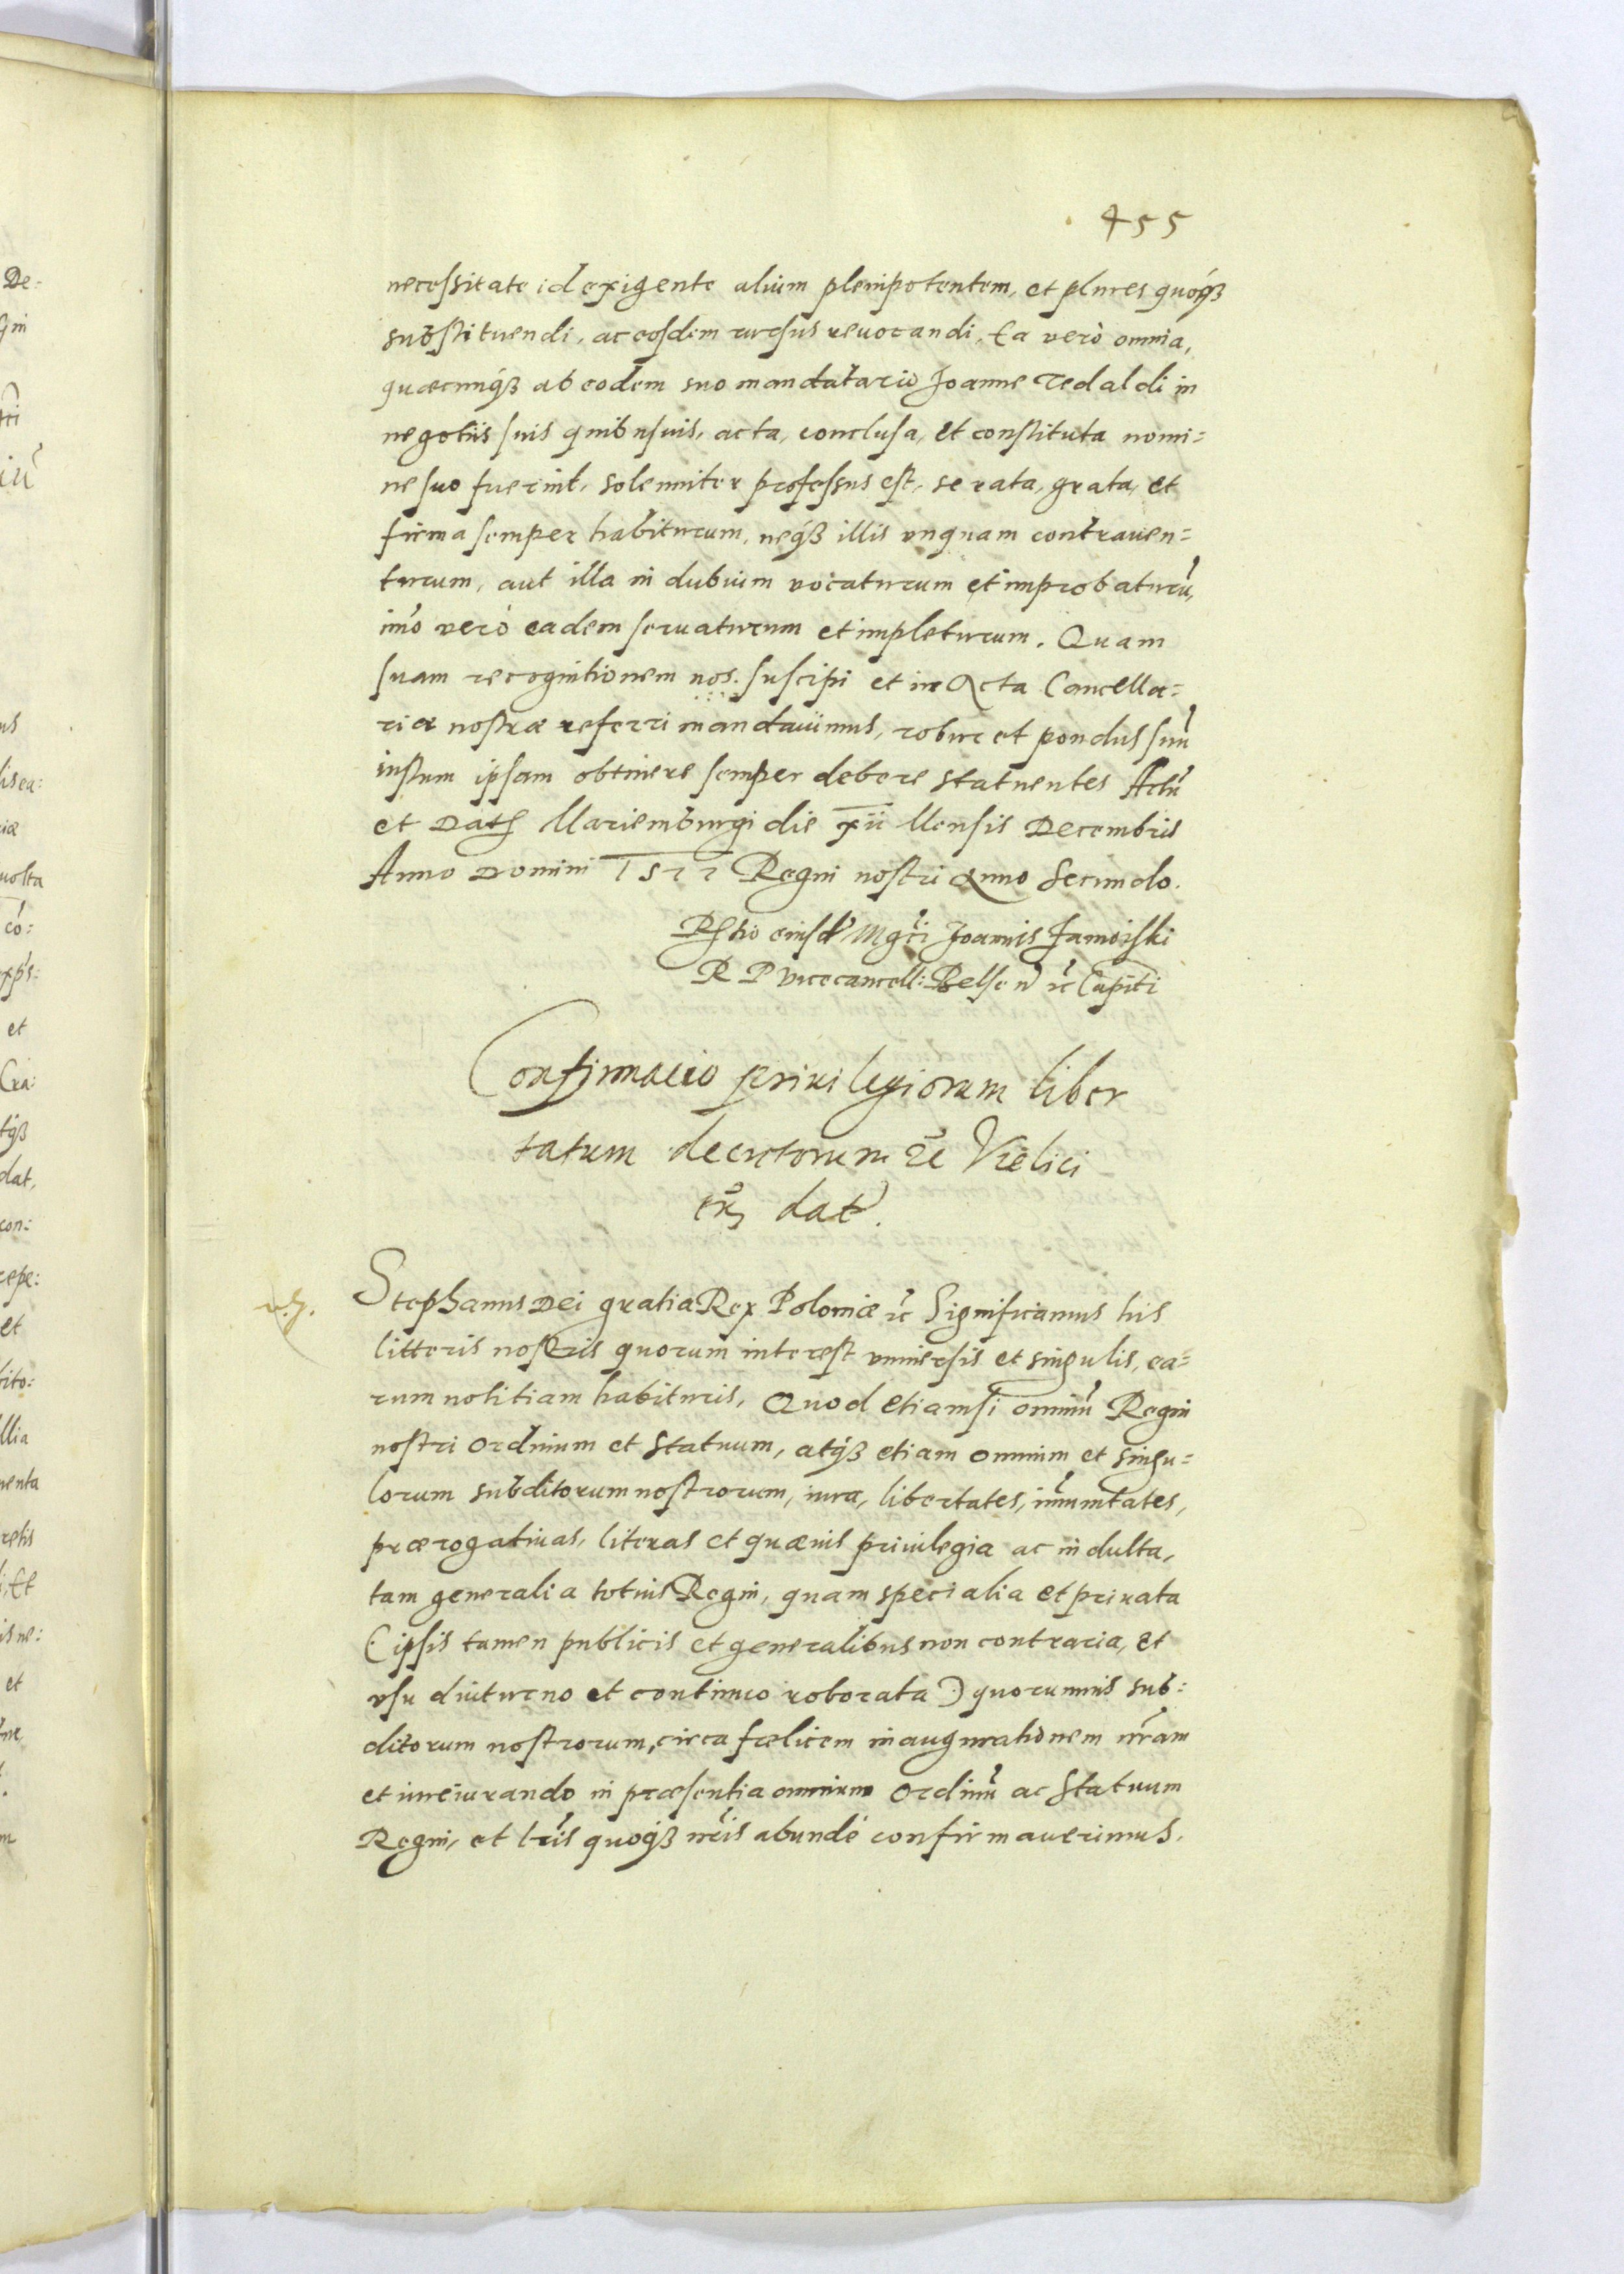 455
necessitate id exigente alium plenipotentem, et plures quoqȝ
substituendi, ac eosdem rursus reuocandi, Ea verò omnia,
quæcunqȝ ab eodem suo mandatario Joanne Tedaldi in
negotiis suis quibusuis, acta, conclusa, et constituta nomi=
ne suo fuerint, solenniter professus est, se rata, grata, et
firma semper habiturum, neqȝ illis vnquam contrauen=
turum, aut illa in dubium vocaturum et improbaturū,
imò verò eadem seruaturum et impleturum. Quam
suam recognitionem nos suscipi et in Acta Cancella=
riæ nostræ referri mandauimus, robur et pondus suū
iustum ipsam obtinere semper debere statuentes Actū
et Dat Mariemburgi die xii Mensis Decembris
Anno Domini 1577 Regni nostri Anno Secundo.
Rtio eiusd Mgci Joannis Zamoiski
R P Vicecancell: Belsen ec Capiti
Confirmacio priuilegiorum liber
tatum decretorum ec Vielici
en dat.
v.g.
Stephanus Dei gratia Rex Poloniæ ec Significamus his
litteris nostris quorum interest vniuersis et singulis, ea=
rum notitiam habituris, Quod etiamsi omniū Regni
nostri Ordinum et Statuum, atqȝ etiam omnium et singu=
lorum subditorum nostrorum, iura, libertates, imunitates,
prærogatiuas, literas et quæuis priuilegia ac indulta,
tam generalia totius Regni, quam specialia et priuata
(ipsis tamen publicis et generalibus non contraria, et
vsu diuturno et continuo roborata) quorumuis sub=
ditorum nostrorum, circa fælicem inaugurationem nr̃am
et iureiurando in præsentia omnium Ordinū ac Statuum
Regni, et lr̃is quoqȝ nr̃is abundè confirmauerimus.